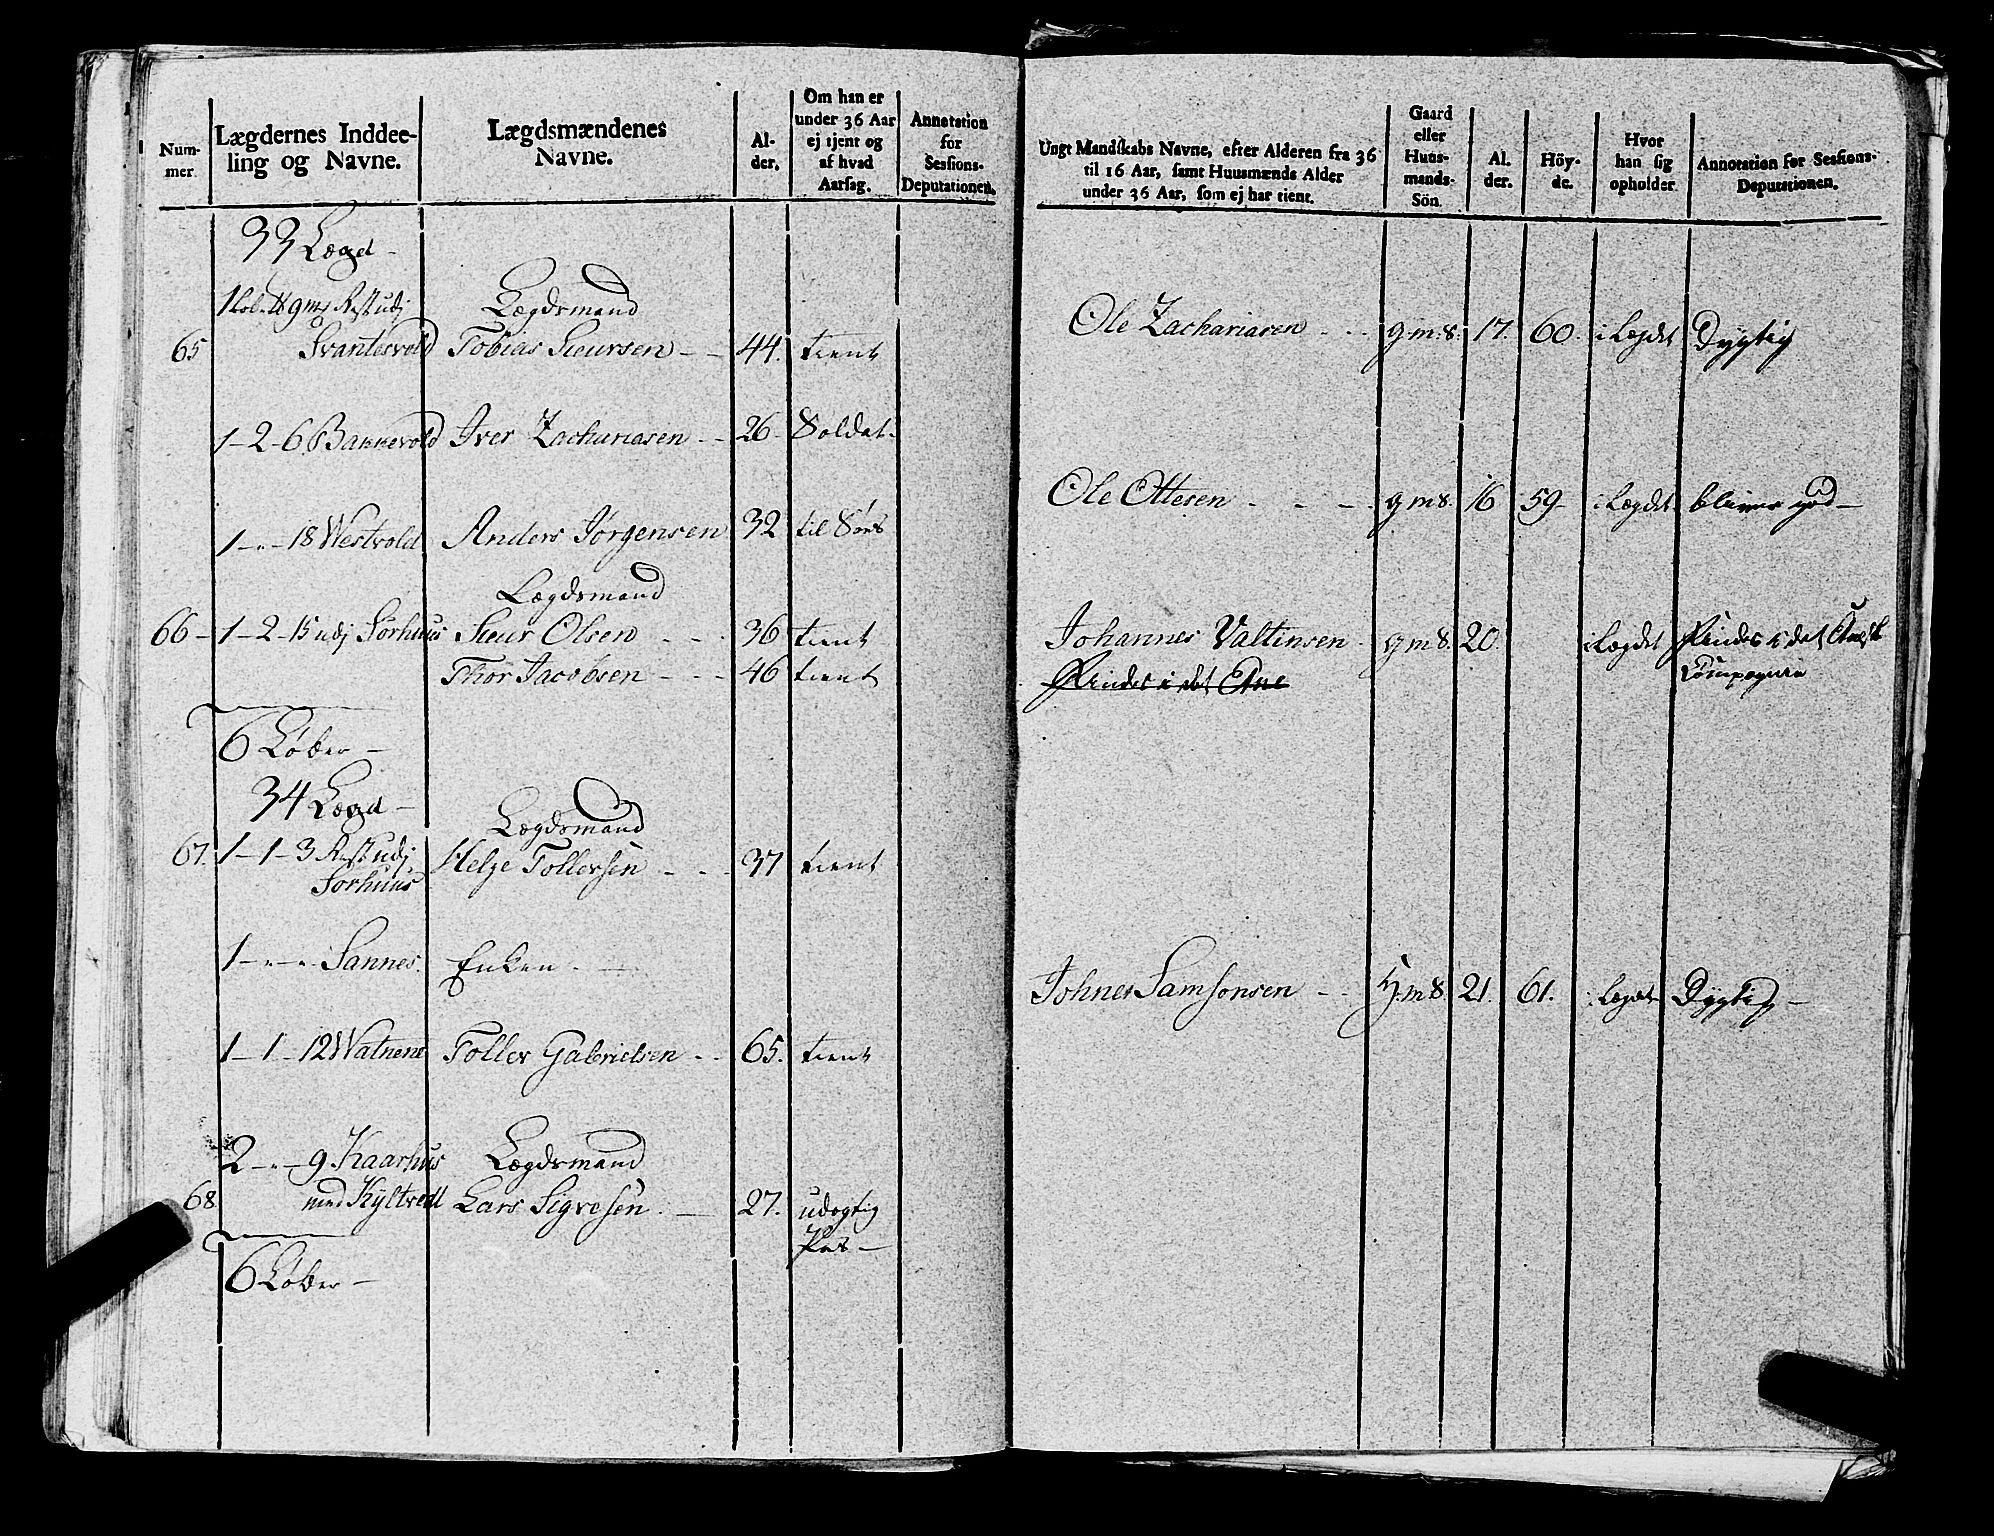 Num-
mer.
Lægdernes Inddee-
ling og Navne.
Lægdsmændenes
Navne.
Al-
der.
Om han er
under 36 Aar
ej tjent og
af hvad
Aarsag.
Annotation
for
Sessions-
Deputationen.
33 Lægd -
Rest udj Lægdsmand
65 Svantesvold Tobias Sieursen - - 44. tient
1-2-6 Bakkevold Iver Zachariasen - - 26. Soldat.
1-"-18 Westvold Anders Jörgensen 32 til Söes
Lægdsmand
66 - 1-2-15 udj Sörhuus Sieur Olsen - - - 36 tient
Thor Jacobsen - - - 46 tient
6 Löber -
34 Lægd -
Lægdsmand
67. 1-1-3 Rest udj Helge Tollevsen - - - 37 tient
Sörhuus
1-"-" Sannes. Enken - -
1-1-12 Watnene Tollev Gabrielsen - - 65. tient
2-"-9 Kaarhus Lægdsmand
68 med Kyltvedt Lars Sigvesen. - 27. udygtig
Pas -
6 Löber -
Ungt Mandskabs Navne, efter Alderen fra 36
til 16 Aar, samt Huusmænds Alder
under 36 Aar, som ej har tient.
Gaard
eller
Huus-
mands-
Sön.
Al.
der.
Höy-
de.
Hvor
han sig
opholder.
Annotation for Sessions-
Deputationen.
Ole Zachariasen - - - gm:s. 17. 60. i Lægdet Dygtig
Ole Ottesen - - - - gms. 16 59 - i Lægdet bliver god -
Johannes Valtinsen. gms. 20. i Lægdet Findes i det
Compagnie
Findes i det
Johnes Samsonsen - - H.ms. 21. 61. i Lægdet Dygtig -